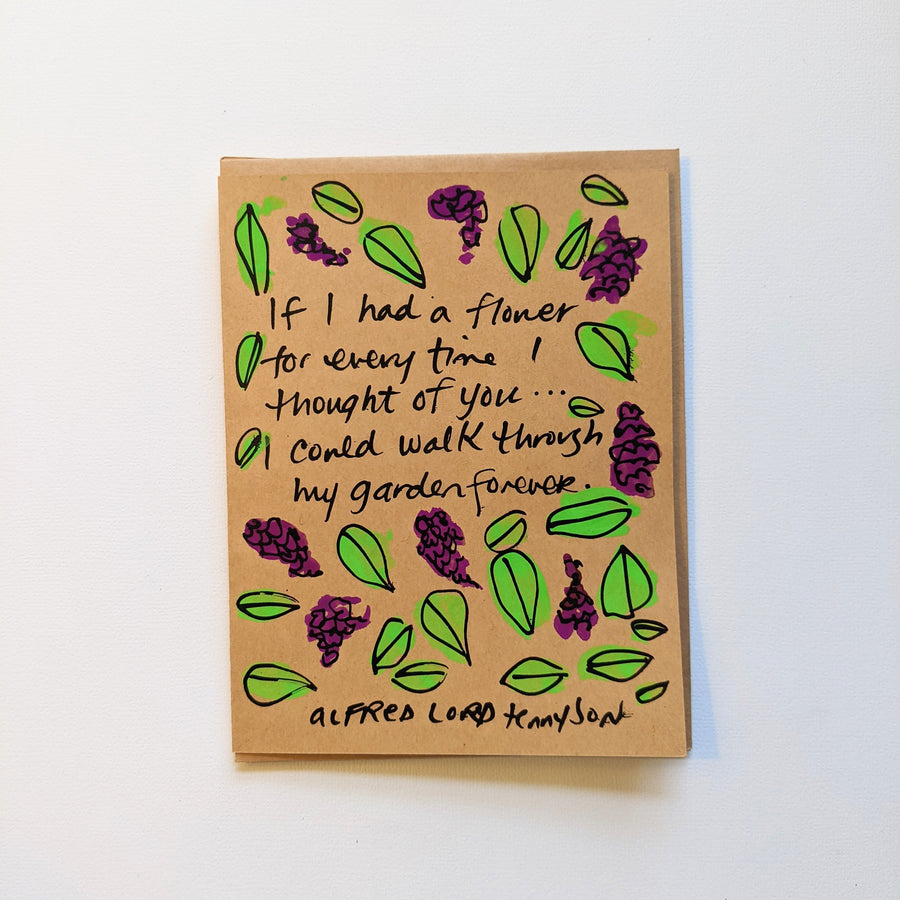 If I had a flower
for every time I
thought of you...
I could walk through
my garden forever.
ALFRED LORD tennyson